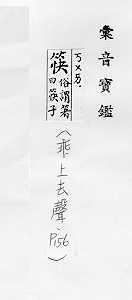 彙音寶鑑
ㄎㄨㄞˋ
筷 俗謂箸
曰筷子
（乖上去聲·P.156）